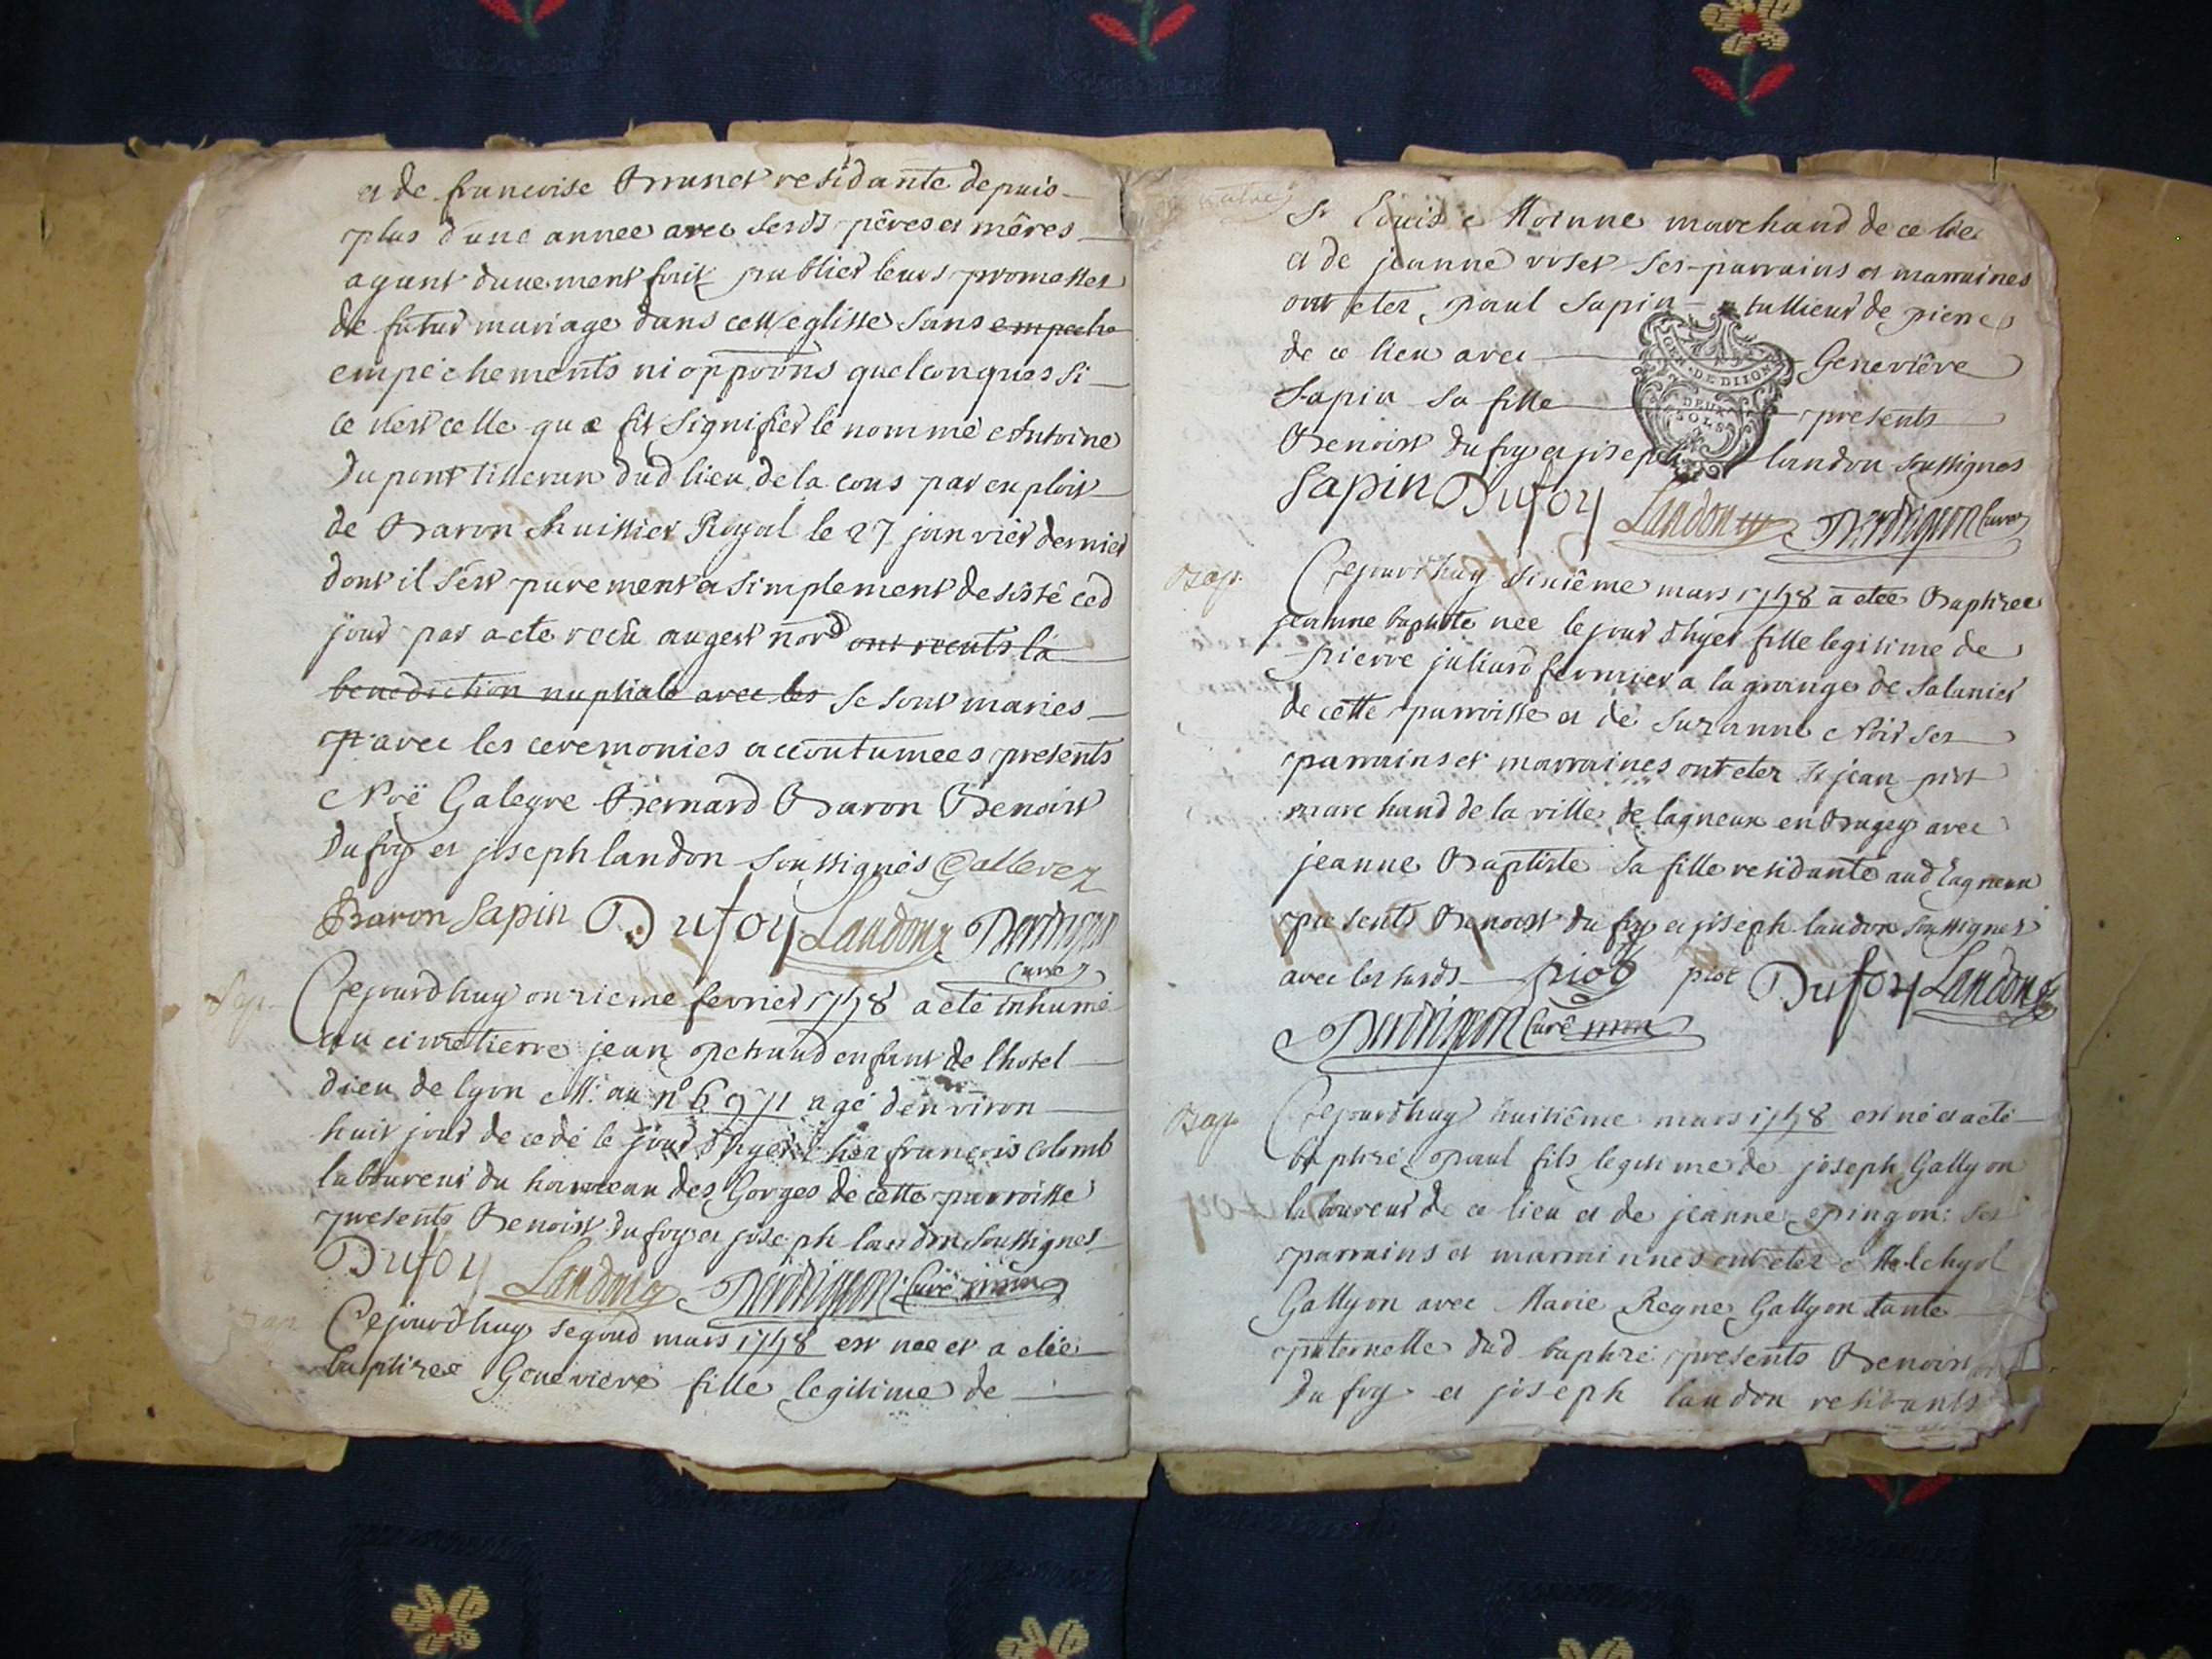 et de francoise Brunet residante depuis
plus d'une annee avec sesds pêres et mêres
ayant duuement fait publier leurs promesses
de futur mariage dans cette eglisse sans empeche
empéchements ni oppoons quelconques si
ce n'est celle que fit signifier le nommé Antoine
Dupont tisseran dud lieu de la cous par exploit
de Baron huissier Royal le 27 janvier dernier
dont il s'est purement et simplement desisté ced
jour par acte recû nord ont receuts la
benediction nuptiale avec les se sont maries
avec les ceremonies accoutumees presents
Noë Galegre Bernard Baron Benoist
Dufoy et joseph landon soussignés Gallerez
Baron Sapin Dufoy Landon Derdrigeon
Curé
Sep. Cejourdhuy onzieme fevrier 1748 a eté inhumé
au cimetierre jean Petraud enfant de lhotel
dieu de lyon M. au n° 6971 agé denviron
huit jour decedé le jour d'hyer chez francois Colomb
laboureur du hameau des Gorges de cette parroisse
presents Benoist Dufoy et joseph landon soussignes
Dufoy Landon Derdrigeon Curé
Cejourdhuy segond mars 1748 est nee et a etée
baptizee Genevieve fille legitime de
Sr Louis Moinne marchand de ce lieu
et de jeanne viset ses parrains et marraines
ont etez paul Sapin tallieur de pierres
de ce lieu avec Geneviêve
Sapin sa fille presents
Benoist Dufoy et joseph landon soussignes
GEN. DE DIJON
DEUX
SOLS
Sapin Dufoy Landon Derdrigeon Curé
Bap. Cejourdhuy sixiême mars 1748 a etée Baptizee
jeanne baptiste nee le jour d'hyer fille legitime de
pierre juliard fermier a la grange de Salanier
de cette parroisse et de Suzanne Noir ses
parrains et marraines ont etez Sr jean piot
marchand de la ville de lagneux en Bugey avec
jeanne Baptiste sa fille residante aud Lagneux
presents Benoist Dufoy et joseph landon soussignes
avec les susds piot piot Dufoy Landon
Derdrigeon Curé
Bap. Cejourdhuy huitiême mars 1748 est né et a eté
baptizé paul fils legitime de joseph Gallyon
laboureur de ce lieu et de jeanne epingon ses
parrains et marrainnes ont etez Melchyol
Gallyon avec Marie Reyne Gallyon tante
paternelle dud baptizé presents Benoist
Dufoy et joseph landon residants